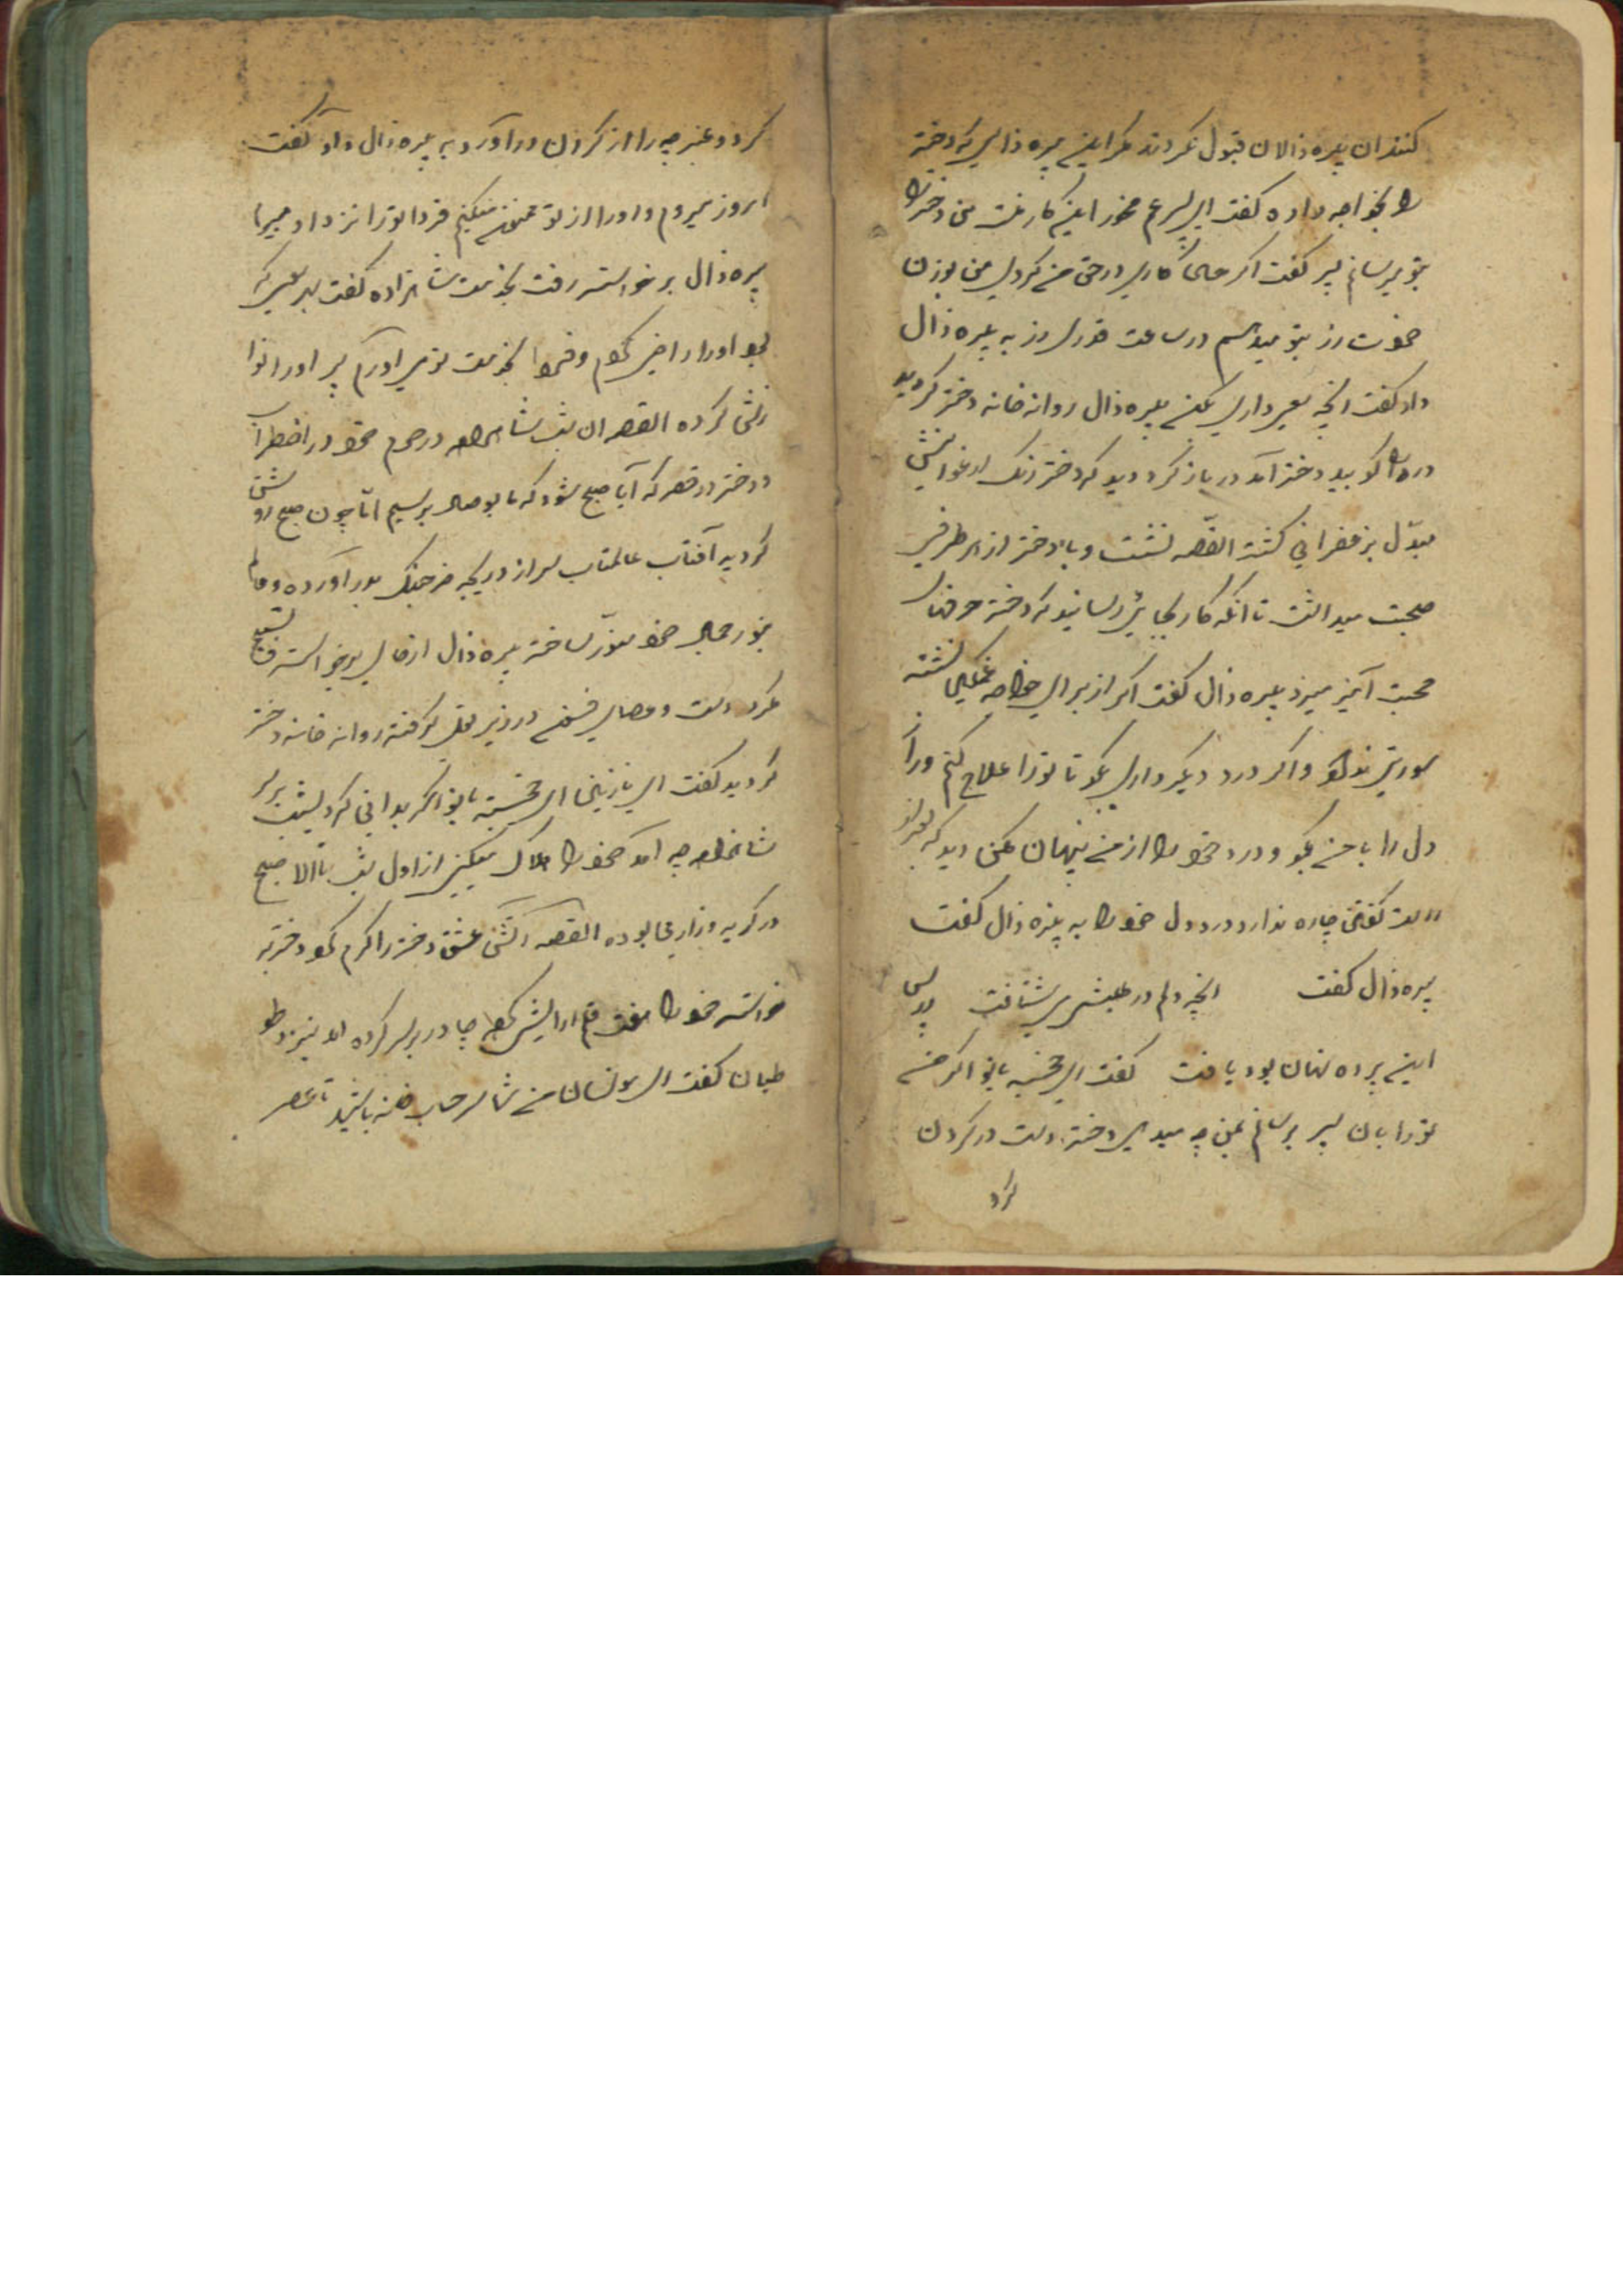 کنند ان پیره زالان قبول نکردند مکر اینے پیره زالی که دختر
را بخواجه داده کفت ای پسر غم مخور اینے کار منت من دختر را
بتو برسانم پسر کفت اکر چنان کاری در حق منے کردی من بوزن
خودت زر بتو میدهم در ساعت قدری زر به پیره زال
داد کفت انچه سعی داری بکن پیره زال روانه خانه دختر کردید
در را کوبید دختر آمد در باز کرد دید که دختر رنک ارغوانیش
مبدّل بزعفرانی کشته القصّه نشست و با دختر از هر طرفی
صحبت میداشت تا انکه کار بجائی رسانید که دختر حرفهای
محبت آمیز میزد پیره زال کفت اکر از برای خواجه غمکین نشسته
سودی ندارد و اکر درد دیکر داری بکو تا تورا علاج کنم راز
دل را با منے بکو و درد خود را از منے پنهان مکن دید که بغیر از
راست کفتن چاره ندارد درد دل خود را به پیره زال کفت
پیره زال کفت انچه دلم در طلبش می شتافت در پس
اینے پرده نهان بود یافت کفت ای خجسته بانو اکر منے
تورا بان پسر برسانم بمن چه میدهی دختر دست در کردن
کرد
کرد و عنبرچه را از کردن در آورد به پیره زال داد کفت
امروز میروم و اورا از تو ممنونے میکنم فردا تورا نزد او میبرم
پیره زال برخواسته رفت بخدمت شاهزاده کفت بهر سعی که
بود اورا راضی کردم و فردا بخدمت تو می اورم پسر اورا نوا
زش کرده القصه ان شب شاهزاده در حرم خود در اضطراب
و دختر در قصر که آیا صبح شود که ما بوصال برسیم امّا چون صبح روشن
کردید آفتاب عالمتاب سر از دریچه خرچنک بدر آورده و عالم
بنور جمال خود منوّر ساخته پیره زال از جای برخواسته تسبیح
در دست و عصای در زیر بغل کرفته روانه خانه دختر
کردید کفت ای نازنین ای خجسته بانو اکر بدانی که دیشب بر سر
شاهزاده چه آمد که خود را هلاک میکند از اول شب تا الا صبح
در کریه و زاری بوده القصه آتش عشق دختر را کرم نمود دختر بر
خواسته خود را هفت قلم ارایش کرده چادر بر سر کرده آمد بنزد طو
طیان کفت ای مونسان منے شما سر حساب خانه باشید تا عصر